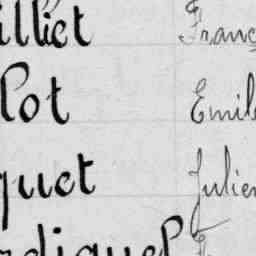 illiet Franç
lot Emil
quet Julien
rdiquel